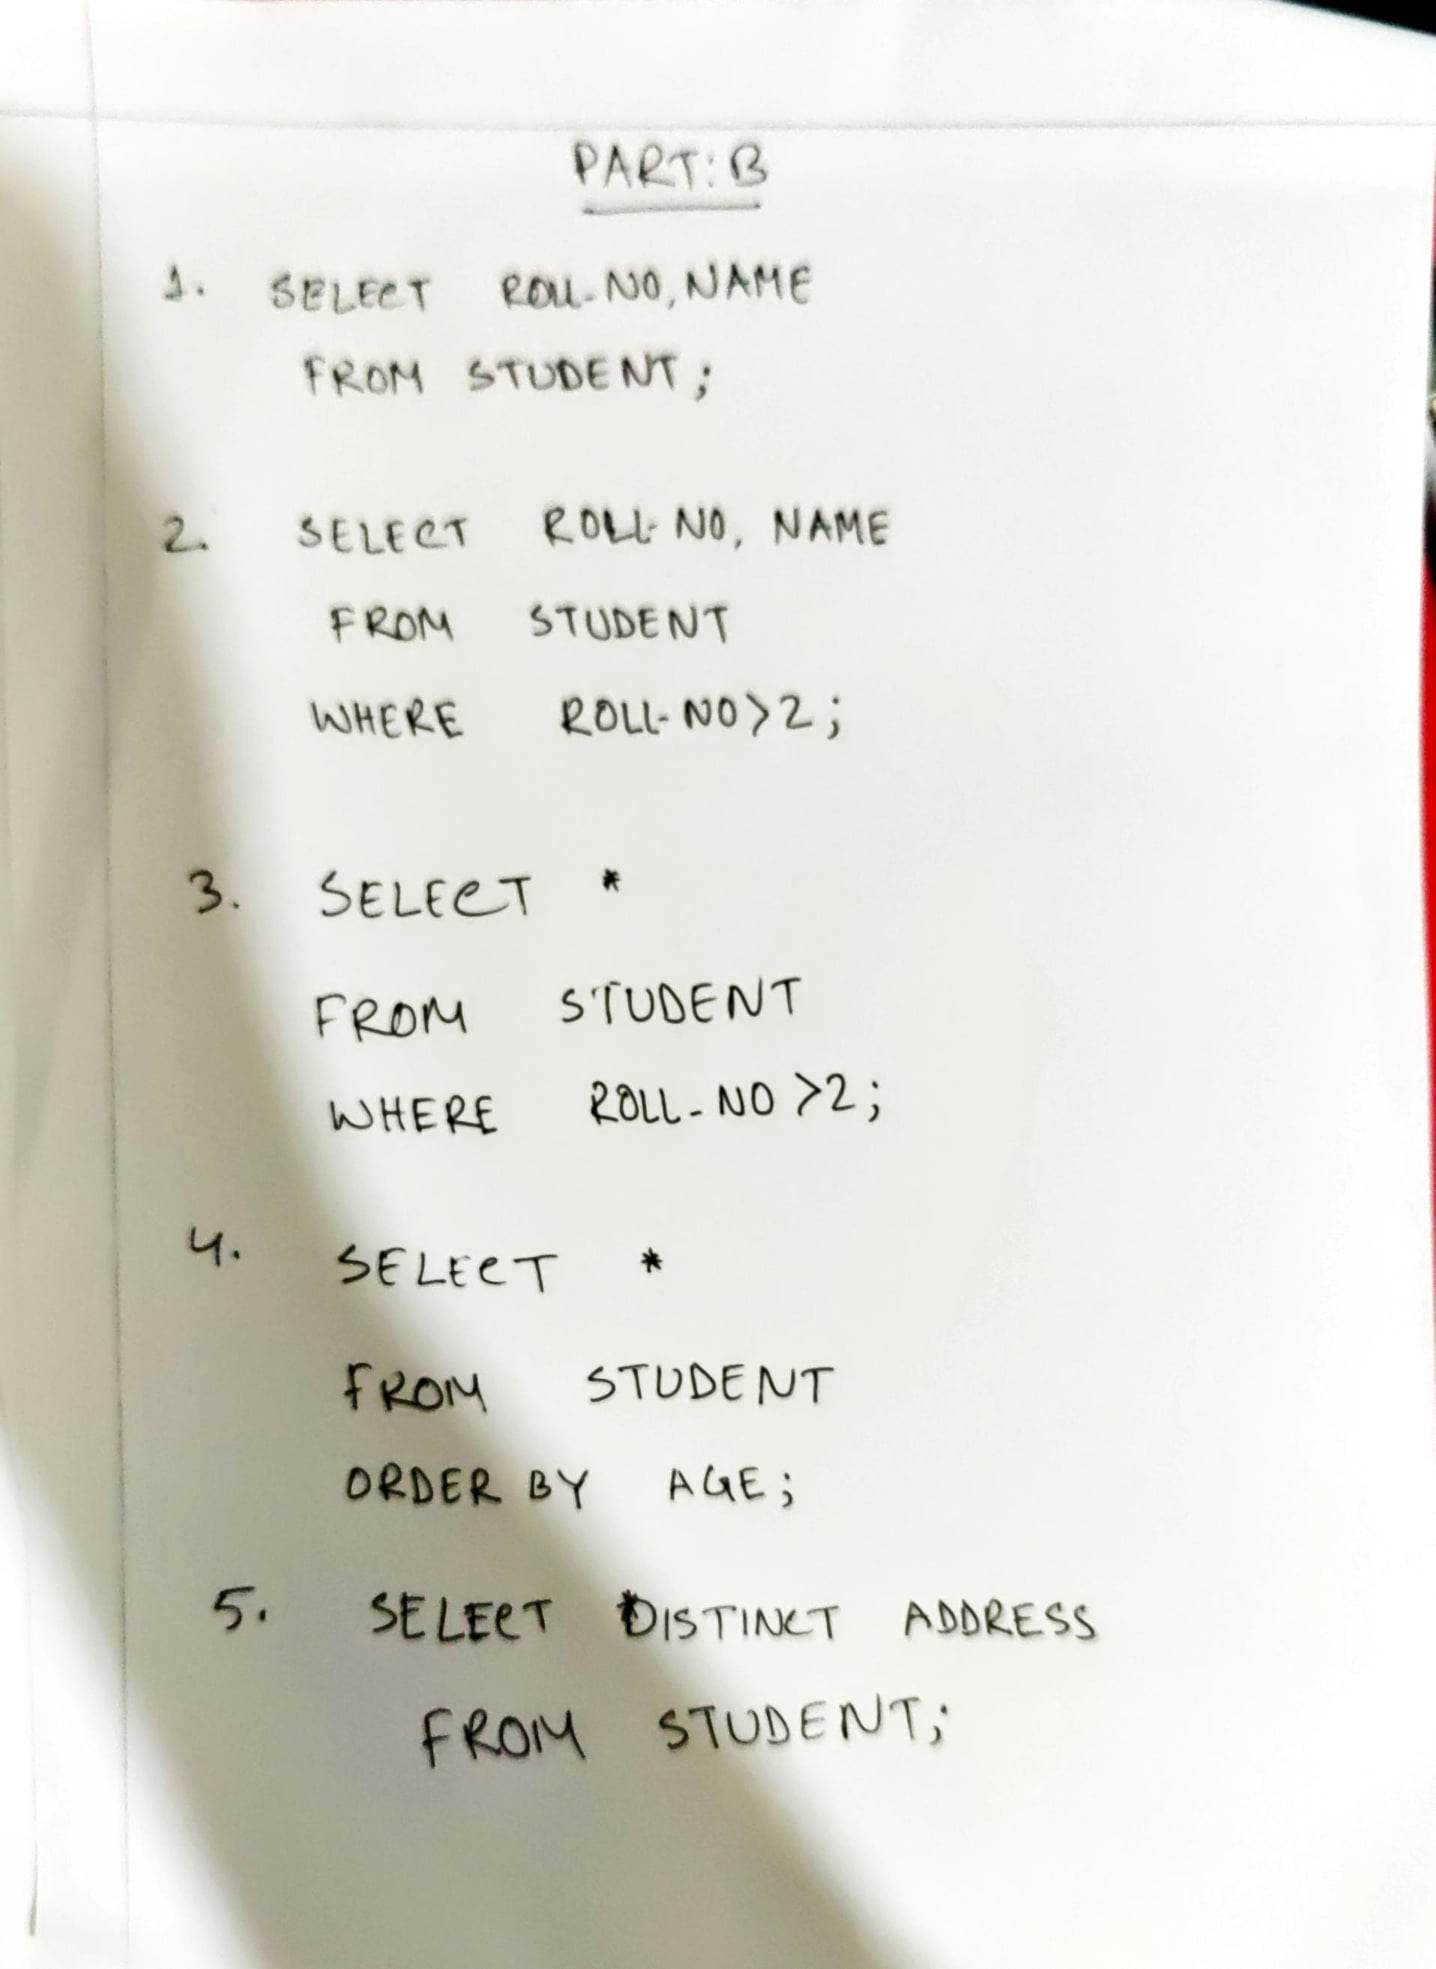 PART:B
1. SELECT ROLL-NO, NAME
FROM STUDENT;
2. SELECT ROLL-NO, NAME
FROM STUDENT
WHERE ROLL-NO>2;
3. SELECT *
FROM STUDENT
WHERE ROLL-NO >2;
4. SELECT *
FROM STUDENT
ORDER BY AGE;
5. SELECT DISTINCT ADDRESS
FROM STUDENT;